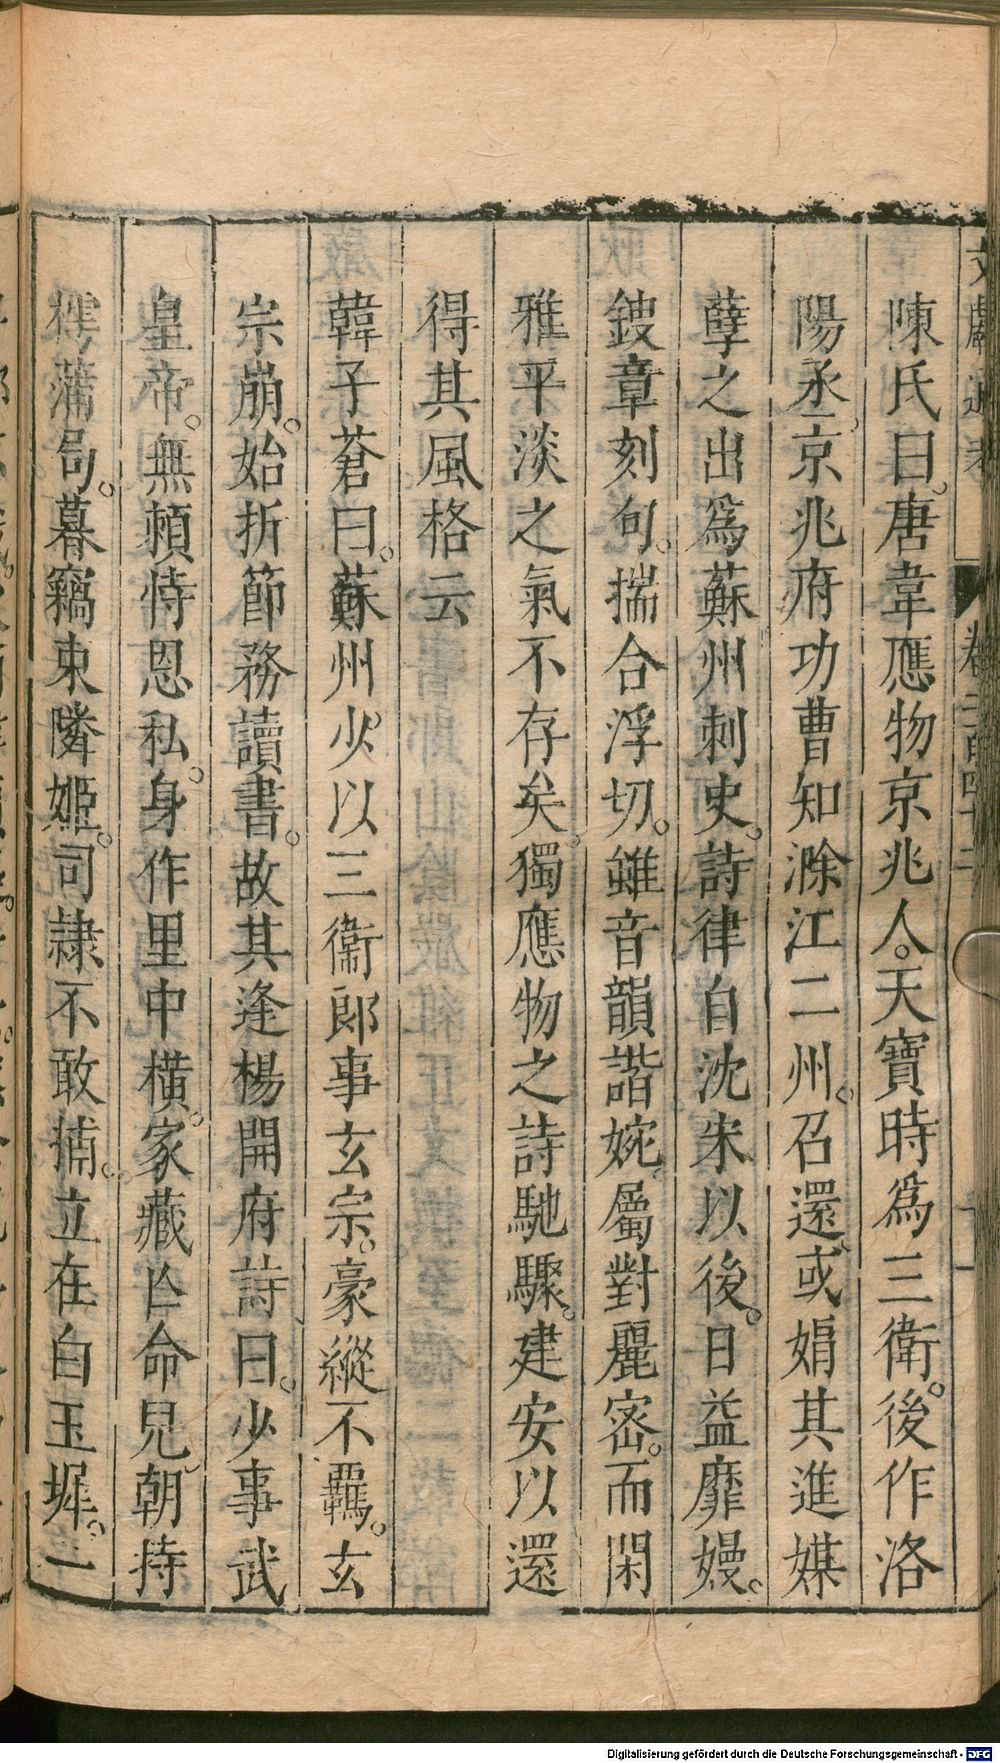 文獻通考 卷二百四十二
陳氏曰。唐韋應物京兆人。天寶時爲三衛。後作洛
陽丞。京兆府功曹知滁江二州。召還。或媢其進媒
孽之出爲蘇州刺史。詩律自沈宋以後。日益靡嫚。
鍥章刻句。揣合浮切。雖音韻諧婉。屬對麗密。而閑
雅平淡之氣不存矣。獨應物之詩馳驟。建安以還
得其風格云
韓子蒼曰。蘇州少以三衛郎事玄宗。豪縱不羈。玄
宗崩。始折節務讀書。故其逢楊開府詩曰。少事武
皇帝。無賴恃恩私。身作里中橫。家藏亡命兒。朝持
樗蒲局。暮竊東隣姬。司隷不敢捕。立在白玉墀。一
Digitalisierung gefördert durch die Deutsche Forschungsgemeinschaft - DFG